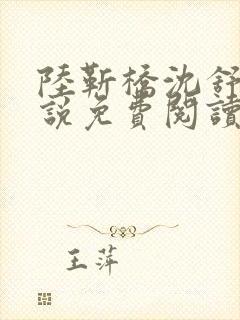 陸靳橋沈舒
說免費閱讀
王萍